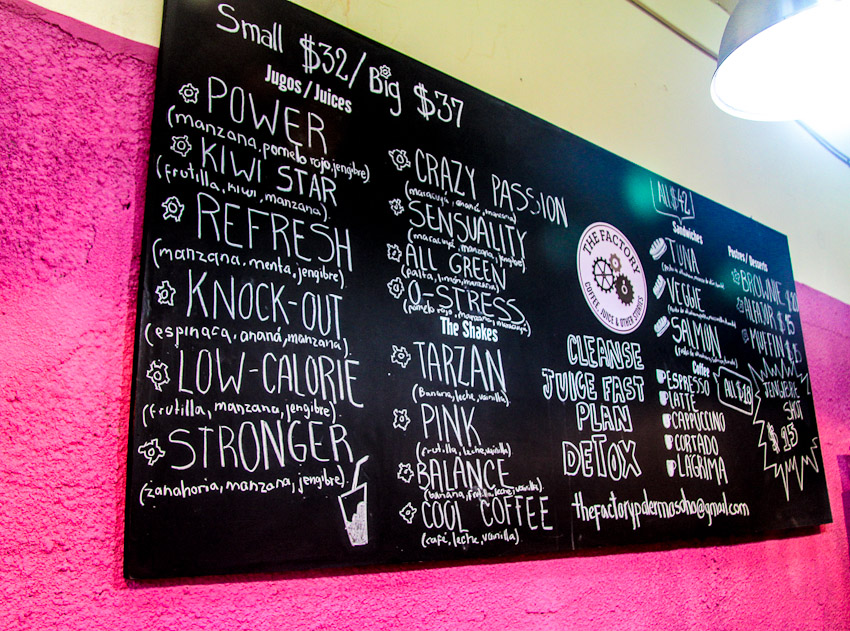 Small $32/Big $37
Jugos/Juices
POWER
(manzana, pomelo rojo, jengibre)
KIWI STAR
(frutilla, kiwi, manzana)
REFRESH
(manzana, menta, jengibre)
KNOCK-OUT
(espinaca, ananá, manzana)
LOW-CALORIE
(frutilla, manzana, jengibre)
STRONGER
(zanahoria, manzana, jengibre)
CRAZY PASSION
(maracuyá, ananá, manzana)
SENSUALITY
(maracuyá, manzana, jengibre)
ALL GREEN
(palta, limón, manzana)
O-STRESS
(pomelo rojo, manzana, maracuya)
The Shakes
TARZAN
(Banana, leche, vainilla)
PINK
(frutilla, leche, vainilla)
BALANCE
(banana, frutilla, leche, vainilla)
COOL COFFEE
(café, leche, vainilla)
THE FACTORY
COFFEE, JUICE & OTHER STORIES
CLEANSE
JUICE FAST
PLAN
DETOX
thefactorypalermosoho@gmail.com
All $42
Sandwiches
TUNA
VEGGIE
SALMON
Coffee
ESPRESSO
LATTE
CAPPUCCINO
CORTADO
LÁGRIMA
ALL $18
Postres/Desserts
BROWNIE
ALFAJOR $15
MUFFIN $15
JENGIBRE
SHOT
$15